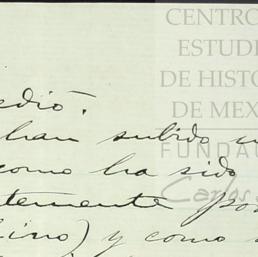 CENTRO
ESTUDI
DE HISTO
DE MEX
FUNDA
Carlos
edió.
han subido
como ha sido
temente por
ino) y como